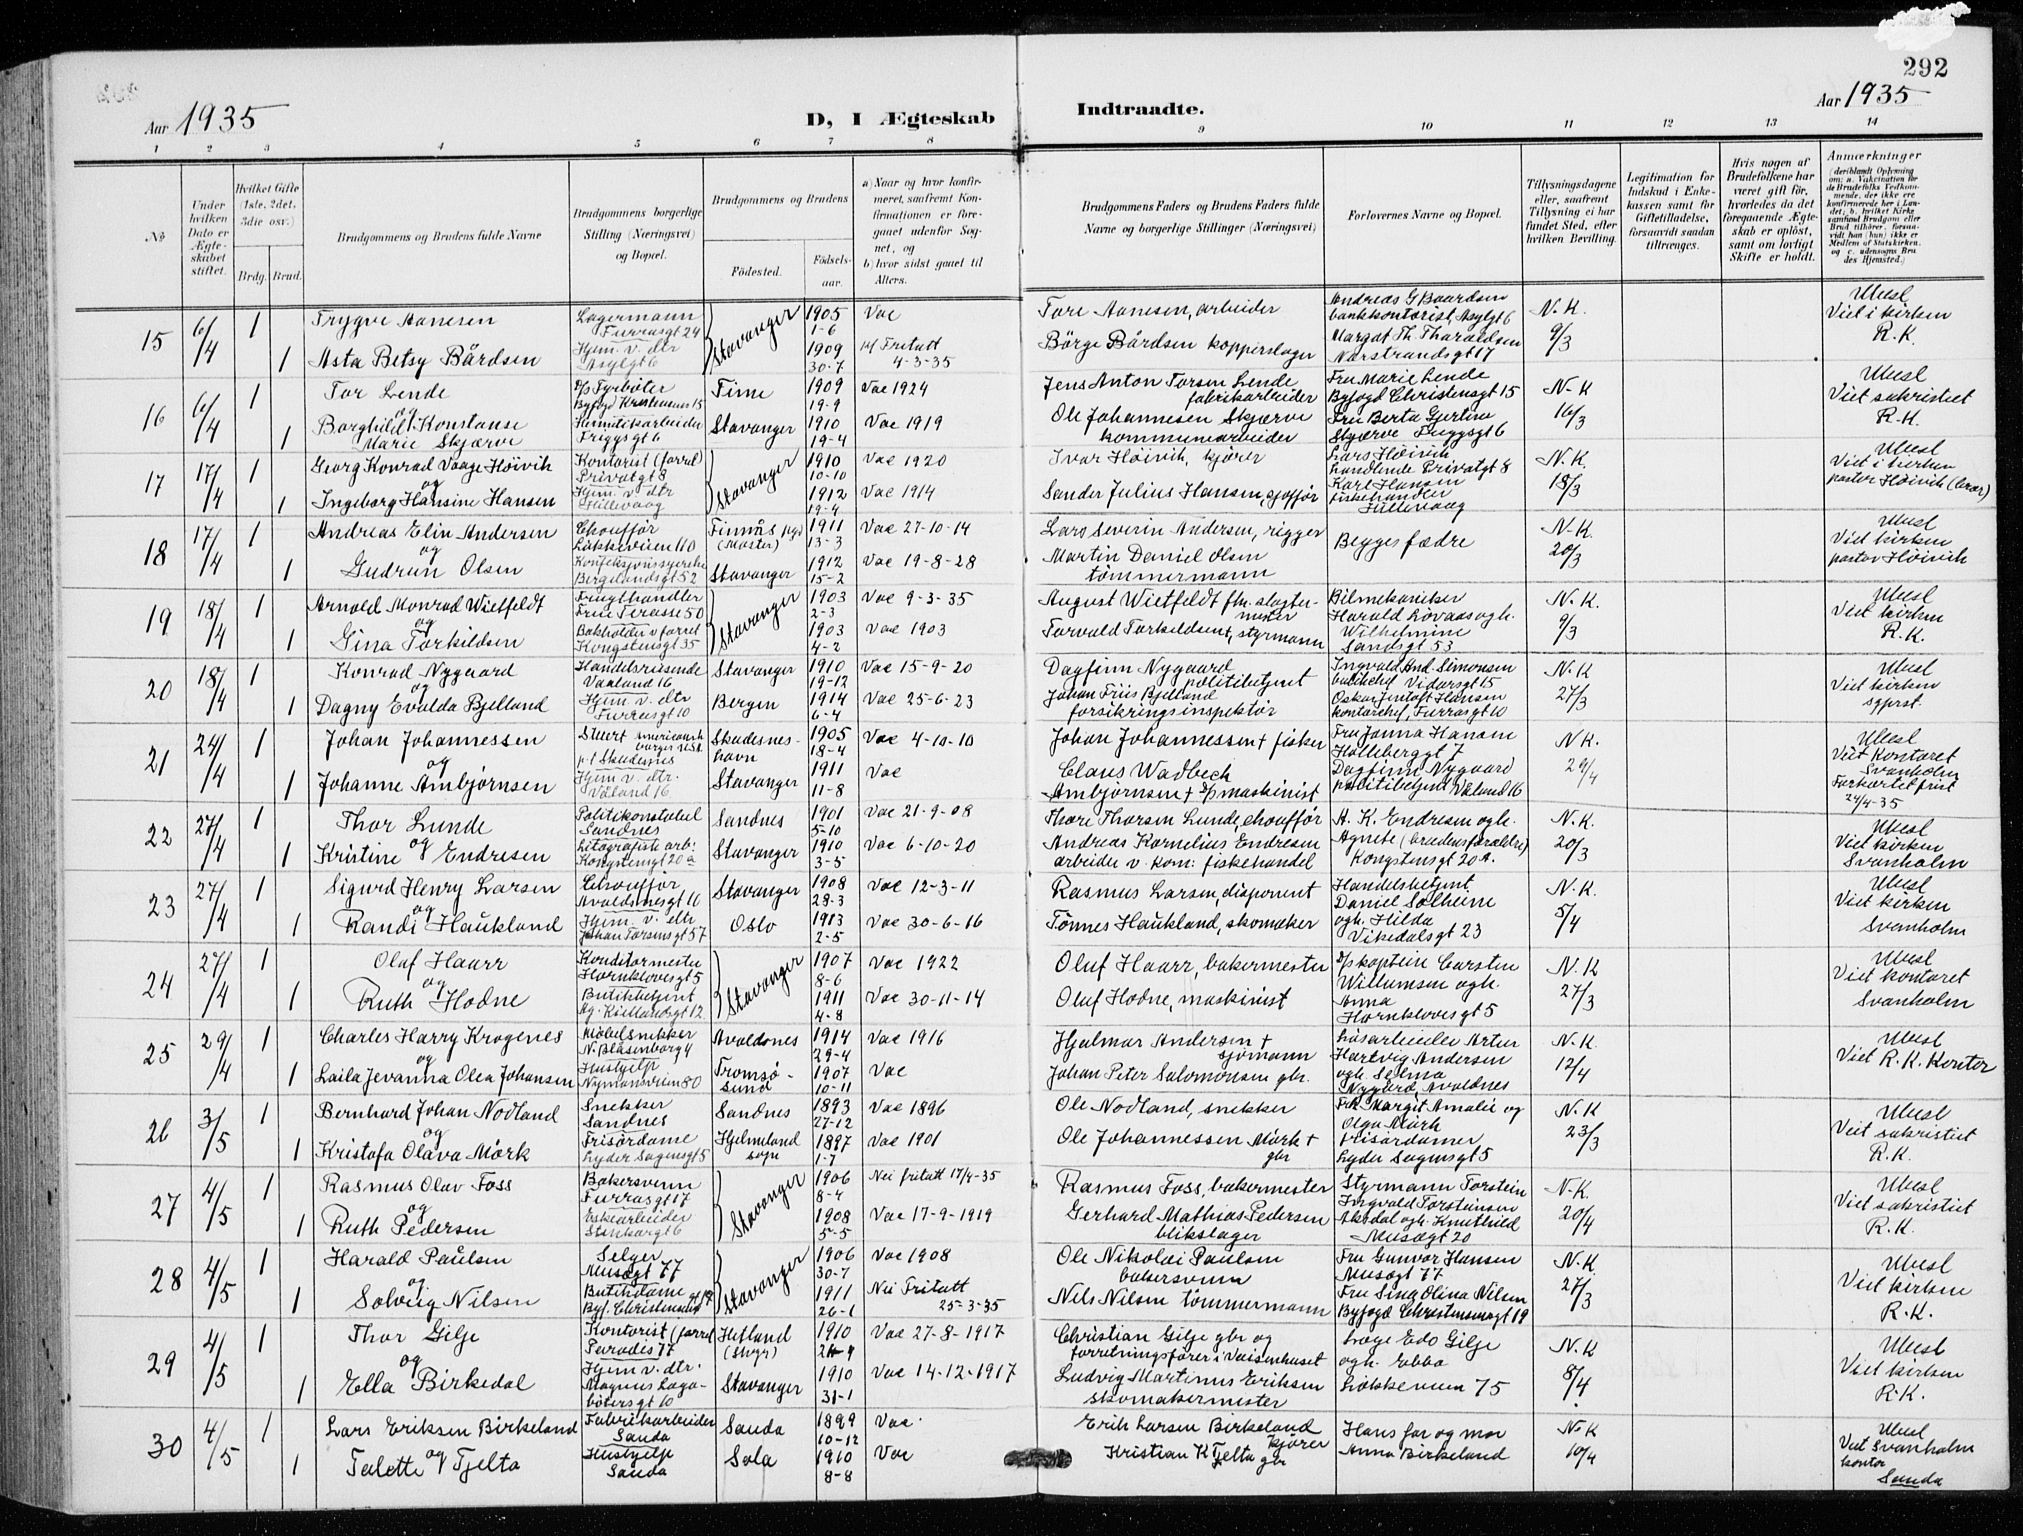 292
Aar 1935
D, I Ægteskab
Indtraadte.
Aar 1935
1 2 3 4 5 6 7 8 9 10 11 12 13 14
No
Under hvilken Dato er Ægteskabet stiftet.
Hvilket Gifte (1ste, 2det, 3die osv.)
Brdg. Brud.
Brudgommens og Brudens fulde Navne
Brudgommens borgerlige Stilling (Næringsvei) og Bopæl.
Brudgommens og Brudens
Födested.
Födselsaar.
a) Naar og hvor konfirmeret, saafremt Konfirmationen er foregaaet udenfor Sognet, og
b) hvor sidst gaaet til Alters.
Brudgommens Faders og Brudens Faders fulde Navne og borgerlige Stillinger (Næringsvei)
Forlovernes Navne og Bopæl.
Tillysningsdagene eller, saafremt Tillysning ei har fundet Sted, efter hvilken Bevilling.
Legitimation for Indskud i Enkekassen samt for Giftetilladelse, forsaavidt saadan tiltrænges.
Hvis nogen af Brudefolkene har været gift för, hvorledes da det foregaaende Ægteskab er oplöst, samt om lovligt Skifte er holdt.
Anmærkninger
(deriblandt Oplysning om: a. Vakcination for de Brudefolks Vedkommende, der ikke ere konfirmerede her i Landet; b. hvilket Kirkesamfund Brudgom eller Brud tilhörer, forsaavidt han (hun) ikke er Medlem af Statskirken, og c. udensogns Brudes Hjemsted.)
15 6/4 1 Trygve Aanesen Lagermann Furrasgt 24 Stavanger 1905 1-6 Vac Tore Aanesen, arbeider Andreas G Baardsen bankkontorist, Asylgt 6 N.K. 9/3 Ubesl Viet i kirken R.K.
1 Asta Betsy Bårdsen Hjem. v. dtr Asylgt 6 1909 30-7 Fritatt 4-3-35 Börge Bårdsen kopperslager Margot Th. Tharaldsen Norstrandsgt 17
16 6/4 1 Tor Lende og D/S Fyrböter Byfogd Kristensens 15 Time 1909 19-9 Vac 1924 Jens Anton Torsen Lende fabrikarbeider Fru Marie Lende Byfogd Christensgt 15 N-K 16/3 Ubesl Viet sakristiet R.K.
1 Borghild Konstanse Marie Skjærve Hermetikarbeider Friggsgt 6 Stavanger 1910 19-4 Vac 1919 Ole Johannesen Skjærve kommunearbeider Fru Berta Gertine Skjærve Friggsgt 6
17 17/4 1 Georg Konrad Vaage Höivik og Kontorist (forrel) Privatgt 8 Stavanger 1910 10-10 Vac 1920 Ivar Höivik, kjörer Lars Höivik Landlende Privatgt 8 N.K. 18/3 Ubesl Viet i kirken pastor Höivik (bror)
1 Ingeborg Hansine Hansen Hjem. v. dtr Hillevaag 1912 19-4 Vac 1914 Sander Julius Hansen, sjofför Karl Hansen fiskehandler Hillevaag
18 17/4 1 Andreas Elin Andersen og Chouffør Lökkeveien 110 Finnås pgd (Moster) 1911 13-3 Vac 27-10-14 Lars Severin Andersen, rigger Begges fædre N-K. 20/3 Ubesl Viet kirken pastor Höivik
1 Gudrun Olsen Konfeksjonssyerske Bergelandsgt 52 Stavanger 1912 15-2 Vac 19-8-28 Martin Daniel Olsen tömmermann
19 18/4 1 Arnold Monrad Wietfeldt og Frugthandler Frue Terasse 50 Stavanger 1903 2-3 Vac 9-3-35 August Wietfeldt fhv. slagtermester Bilmekaniker Harald Lövaas ogh. N.K. 9/3 Ubesl Viet kirken R.K.
1 Gina Torkildsen Bokholder v forret Kongstensgt 35 1903 4-2 Vac 1903 Torvald Torkildsen+, styrmann Wilhelmine Sandsgt 53
20 18/4 1 Konrad Nygaard og Handelsreisende Vaaland 16 Stavanger 1910 19-12 Vac 15-9-20 Dagfinn Nygaard politibetjent Ingvald And. Simonsen Vidarsgt 15 N.K 27/3 Ubesl Viet kirken sgprst.
1 Dagny Evolda Bjelland Hjem. v. dtr Furrasgt 10 Bergen 1914 6-4 Vac 25-6-23 Johan Friis Bjelland forsikringsinspektör Oskar Jentoft Hansen kontorchef, Furrasgt 10
21 24/4 1 Johan Johannessen og Stuert americansk borger U.S.A p.t Skudesnes Skudesneshavn 1905 18-4 Vac 4-10-10 Johan Johannessen+ fisker Fru Jonna Hansen Holleberggt 7 N K. 29/4 Ubesl Viet Kontoret Svanholm Forkortet frist 24/4-35
1 Johanne Ambjörnsen Hjem v. dtr. Våland 16 Stavanger 1911 11-8 Vac Claus Wadbech Ambjörnsen + D/S maskinist Dagfinn Nygaard politibetjent Våland 16
22 27/4 1 Thor Lunde og Politikonstabel Sandnes Sandnes 1901 5-10 Vac 21-9-08 Thore Thorsen Lunde, chouffør A. K. Endresen ogh. N.K. 20/3 Ubesl Viet kirken Svanholm
1 Kristine Endresen Litografisk arb: Kongstensgt 20a Stavanger 1910 3-5 Vac 6-10-20 Andreas Kornelius Endresen arbeider v. kom: fiskehandel Agnete (brudens forældre) Kongstensgt 20 A.
23 27/4 1 Sigurd Henry Larsen og Chouffør Avaldsnesgt 16 Stavanger 1908 28-3 Vac 12-3-11 Rasmus Larsen, disponent Handelsbetjent Daniel Solheim N.K. 5/4 Ubesl Viet kirken Svanholm
1 Randi Haukland Hjem. v. dtr Johan Torsensgt 57 Oslo 1913 2-5 Vac 30-6-16 Tönnes Haukland, skomaker ogh. Hilda Vikedalsgt 23
24 27/4 1 Oluf Haarr og Konditormester Hornklovesgt 5 Stavanger 1907 8-6 Vac 1922 Oluf Haarr, bakermester D/S kaptein Carsten Willumsen ogh. N.K 27/3 Ubesl Viet kontoret Svanholm
1 Ruth Hodne Butikkbetjent Ag. Kiellandsgt 12 1911 4-8 Vac 30-11-14 Oluf Hodne, maskinist Anna Hornklovesgt 5
25 29/4 1 Charles Harry Krogenes og Möbelsnekker N. Blåsenborg 4 Avaldsnes 1914 29-4 Vac 1916 Hjalmar Andersen + sjömann Lösarbeider Artur Hartvig Andersen N.K. 12/4 Ubesl Viet R.K. Kontor
1 Laila Jevanna Olea Johansen Hushjelp Nymansveien 80 Tromsösund 1907 10-11 Vac Johan Peter Salomonsen gbr. ogh. Selma Nygård, Avaldnes
26 3/5 1 Bernhard Johan Nodland og Snekker Sandnes Sandnes 1893 27-12 Vac 1896 Ole Nodland, snekker Frk Margit Amalie og Olga Mörk N.K 23/3 Ubesl Viet sakristiet R.K.
1 Kristofa Olava Mörk Frisördame Lyder Sagensgt 5 Hjelmeland sogn 1897 1-7 Vac 1901 Ole Johannessen Mörk + gbr frisördamer Lyder Sagensgt 5
27 4/5 1 Rasmus Olav Foss og Bakersvenn Furrasgt 17 Stavanger 1906 8-4 Nei fritatt 17/4-35 Rasmus Foss, bakermester Styrmann Torstein Ingvald Torsteinsen N-K. 20/4 Ubesl Viet sakristiet R.K.
1 Ruth Pedersen Eskearbeider Stenkargt 6 1908 5-5 Vac 17-9-1919 Gerhard Mathias Pedersen blikslager Aksdal ogh. Knuthild Musægt 20
28 4/5 1 Harald Paulsen og Selger Musægt 77 Stavanger 1906 30-7 Vac 1908 Ole Nikolai Paulsen bakersvenn Fru Gunvor Hansen Musægt 77 N.K 27/3 Ubesl Viet kirken R.K.
1 Solveig Nilsen Butikdame Byf. Christensens gt 19 1911 26-1 Nei Fritatt 25-3-35 Nils Nilsen tömmermann Fru Sina Olina Nilsen Byfogd Christensensgt 19
29 4/5 1 Thor Gilje og Kontorist (forrel) Paradis 77 Hetland 1910 Vac 27-8-1917 Christian Gilje gbr og forretningsförer i Vaisenhuset Læge Edo Gilje ogh. Ebba N.K 8/4 Ubesl Viet kirken R.K.
1 Ella Birkedal Hjem v. dtr. Magnus Lagabötersgt 10 Stavanger 1910 31-1 Vac 14-12-1917 Ludvig Martinus Eriksen skomakermester Lökkeveien 75
30 4/5 1 Lars Eriksen Birkeland og Fabrikarbeider Sauda Sauda 1899 10-12 Vac. Erik Larsen Birkeland kjörer Hans far og mor N.K 10/4 Ubesl Viet Svanholm kontor Sauda
1 Talette Tjelta Hushjelp Sauda Sola 1910 8-8 Vac Kristian K Tjelta gbr Anna Birkeland